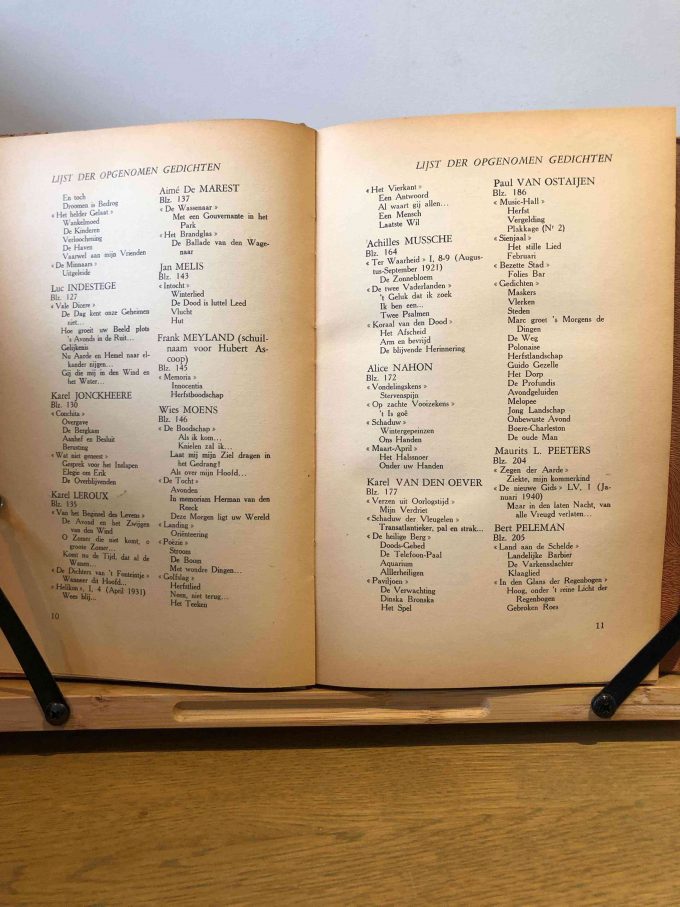 LIJST DER OPGENOMEN GEDICHTEN
En toch
Droomen is Bedrog
« Het helder Gelaat »
Wankelmoed
De Kinderen
Verloochening
De Haven
Vaarwel aan mijn Vrienden
« De Minnaars »
Uitgeleide
Luc INDESTEGE
Blz. 127
« Vale Dicere »
De Dag kent onze Geheimen
niet...
Hoe groeit uw Beeld plots
's Avonds in de Ruit...
Gelijkenis
Nu Aarde en Hemel naar el-
kander nijgen...
Gij die mij in den Wind en
het Water...
Karel JONCKHEERE
Blz. 130
« Conchita »
Overgave
De Bergkam
Aanhef en Besluit
Berusting
« Wat niet geneest »
Gesprek voor het Inslapen
Elegie om Erik
De Overblijvenden
Karel LEROUX
Blz. 135
« Van het Beginsel des Levens »
De Avond en het Zwijgen
van den Wind
O Zomer die niet komt, o
groote Zomer...
Komt nu de Tijd, dat al de
Wanen...
« De Dichters van 't Fonteintje »
Wanneer dit Hoofd...
« Helikon », I, 4 (April 1931)
Wees blij...
10
Aimé De MAREST
Blz. 137
« De Wassenaar »
Met een Gouvernante in het
Park
« Het Brandglas »
De Ballade van den Wage-
naar
Jan MELIS
Blz. 143
« Intocht »
Winterlied
De Dood is luttel Leed
Vlucht
Hut
Frank MEYLAND (schuil-
naam voor Hubert As-
coop)
Blz. 145
« Memoria »
Innocentia
Herfstboodschap
Wies MOENS
Blz. 146
« De Boodschap »
Als ik kom...
Knielen zal ik...
Laat mij mijn Ziel dragen in
het Gedrang!
Als over mijn Hoofd...
« De Tocht »
Avonden
In memoriam Herman van den
Reeck
Deze Morgen ligt uw Wereld
« Landing »
Oriënteering
« Poëzie »
Stroom
De Boom
Met wondre Dingen...
« Golfslag »
Herfstlied
Neen, niet terug...
Het Teeken
LIJST DER OPGENOMEN GEDICHTEN
« Het Vierkant »
Een Antwoord
Al waart gij allen...
Een Mensch
Laatste Wil
Achilles MUSSCHE
Blz. 164
« Ter Waarheid » I, 8-9 (Augus-
tus-September 1921)
De Zonnebloem
« De twee Vaderlanden »
't Geluk dat ik zoek
Ik ben een...
Twee Psalmen
« Koraal van den Dood »
Het Afscheid
Arm en bevrijd
De blijvende Herinnering
Alice NAHON
Blz. 172
« Vondelingskens »
Stervenspijn
« Op zachte Vooizekens »
't Is goê
« Schaduw »
Wintergepeinzen
Ons Handen
« Maart-April »
Het Halssnoer
Onder uw Handen
Karel VAN DEN OEVER
Blz. 177
« Verzen uit Oorlogstijd »
Mijn Verdriet
« Schaduw der Vleugelen »
Transatlantieker, pal en strak...
« De heilige Berg »
Doods-Gebed
De Telefoon-Paal
Aquarium
Alllerheiligen
« Paviljoen »
De Verwachting
Dinska Bronska
Het Spel
Paul VAN OSTAIJEN
Blz. 186
« Music-Hall »
Herfst
Vergelding
Plakkage (Nr 2)
« Sienjaal »
Het stille Lied
Februari
« Bezette Stad »
Folies Bar
« Gedichten »
Maskers
Vlerken
Steden
Marc groet 's Morgens de
Dingen
De Weg
Polonaise
Herfstlandschap
Guido Gezelle
Het Dorp
De Profundis
Avondgeluiden
Melopee
Jong Landschap
Onbewuste Avond
Boere-Charleston
De oude Man
Maurits L. PEETERS
Blz. 204
« Zegen der Aarde »
Ziekte, mijn kommerkind
« De nieuwe Gids » LV, 1 (Ja-
nuari 1940)
Maar in den laten Nacht, van
alle Vreugd verlaten...
Bert PELEMAN
Blz. 205
« Land aan de Schelde »
Landelijke Barbier
De Varkensslachter
Klaaglied
« In den Glans der Regenbogen »
Hoog, onder 't reine Licht der
Regenbogen
Gebroken Roes
11